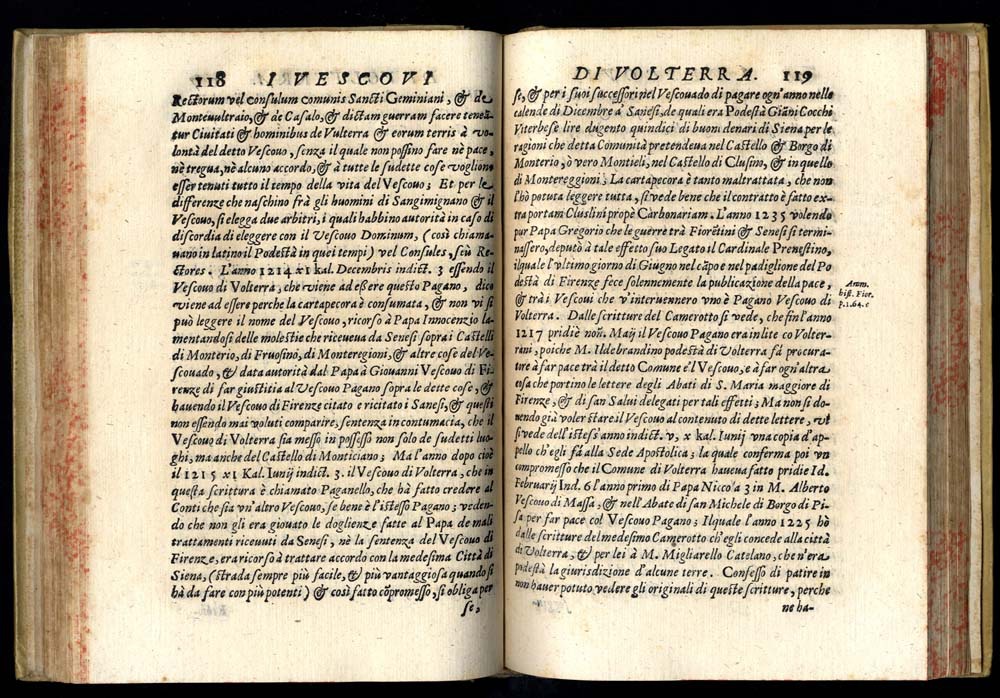 118 I VESCOVI
Rectorum vel consulum comunis Sancti Geminiani, & de
Montevultraio, & de Casalo, & dictam guerram facere teneā-
tur Civitati & hominibus de Vulterra & eorum terris à vo-
lontà del detto Vescovo, senza il quale non possino fare nè pace,
nè tregua, nè alcuno accordo, & à tutte le sudette cose vogliono
esser tenuti tutto il tempo della vita del Vescovo; Et per le
differenze che naschino frà gli huomini di Sangimignano & il
Vescovo, si elegga due arbitri, i quali habbino autorità in caso di
discordia di eleggere con il Vescovo Dominum, (così chiama-
uano in latino il Podestà in quei tempi) vel Consules, seù Re-
ctores. L'anno 1214 XI kal. Decembris indict. 3 essendo il
Vescovo di Volterra, che viene ad essere questo Pagano, dico
viene ad essere perche la cartapecora è consumata, & non vi si
può leggere il nome del Vescovo, ricorso à Papa Innocenzio la-
mentandosi delle molestie che riceueva da Senesi sopra i Castelli
di Monterio, di Fruosino, di Monteregioni, & altre cose del Ve-
scouado, & data autorità dal Papa à Giovanni Vescovo di Fi-
renze di far giustitia al Vescovo Pagano sopra le dette cose, &
hauendo il Vescovo di Firenze citato e ricitato i Sanesi, & questi
non essendo mai voluti comparire, sentenza in contumacia, che il
Vescovo di Volterra sia messo in possesso non solo de sudetti luo-
ghi, ma anche del Castello di Monticiano; Ma l'anno dopo cioè
il 1215 XI Kal. Iunij indict. 3. il Vescovo di Volterra, che in
questa scrittura è chiamato Paganello, che hà fatto credere al
Conti che sia vn'altro Vescovo, se bene è l'istesso Pagano; veden-
do che non gli era giouato le doglienze fatte al Papa de mali
trattamenti riceuuti da Senesi, nè la sentenza del Vescovo di
Firenze, era ricorso à trattare accordo con la medesima Città di
Siena, (strada sempre più facile, & più vantaggiosa quando si
hà da fare con più potenti) & così fatto cōpromesso, si obliga per
se,
DI VOLTERRA. 119
se, & per i suoi successori nel Vescovado di pagare ogn'anno nelle
calende di Dicembre a' Sanesi, de quali era Podestà Giāni Cocchi
Viterbese lire dugento quindici di buoni denari di Siena per le
ragioni che detta Comunità pretendeva nel Castello & Borgo di
Monterio, ò vero Montieli, nel Castello di Clusino, & in quello
di Montereggioni; La cartapecora è tanto maltrattata, che non
l'hò potuta leggere tutta, si vede bene che il contratto è fatto ex-
tra portam Cluslini propè Carbonariam. L'anno 1235 volendo
pur Papa Gregorio che le guerre trà Fiorētini & Senesi si termi-
nassero, deputò à tale effetto suo Legato il Cardinale Prenestino,
ilquale l'vltimo giorno di Giugno nel cāpo e nel padiglione del Po
destà di Firenze fece solennemente la publicazione della pace,
& trà i Vescovi che v'interuennero vno è Pagano Vescovo di
Volterra. Dalle scritture del Camerotto si vede, che fin l'anno
1217 pridiè noñ. Maij il Vescovo Pagano era in lite co Volter-
rani, poiche M. Ildebrandino podestà di Volterra fà procura-
tore à far pace trà il detto Comune e'l Vescovo, e à far ogn'altra
cosa che portino le lettere degli Abati di S. Maria maggiore di
Firenze, & di san Salui delegati per tali effetti; Ma non si do-
uendo già voler stare il Vescovo al contenuto di dette lettere, vt
si vede dell'istess'anno indict. v, x kal. Iunij vna copia d'ap-
pello ch'egli fà alla Sede Apostolica; la quale conferma poi vn
compromesso che il Comune di Volterra haueua fatto pridie Id.
Februarij Ind. 6 l'anno primo di Papa Nicco'a 3 in M. Alberto
Vescovo di Massa, & nell'Abate di san Michele di Borgo di Pi-
sa per far pace col Vescovo Pagano; Ilquale l'anno 1225 hò
dalle scritture del medesimo Camerotto ch'egli concede alla città
di Volterra, & per lei à M. Migliarello Catelano, che n'era
podestà la giurisdizione d'alcune terre. Confesso di patire in
non hauer potuto vedere gli originali di queste scritture, perche
ne ha-
Amm.
hist. Fior.
p.1.64.c